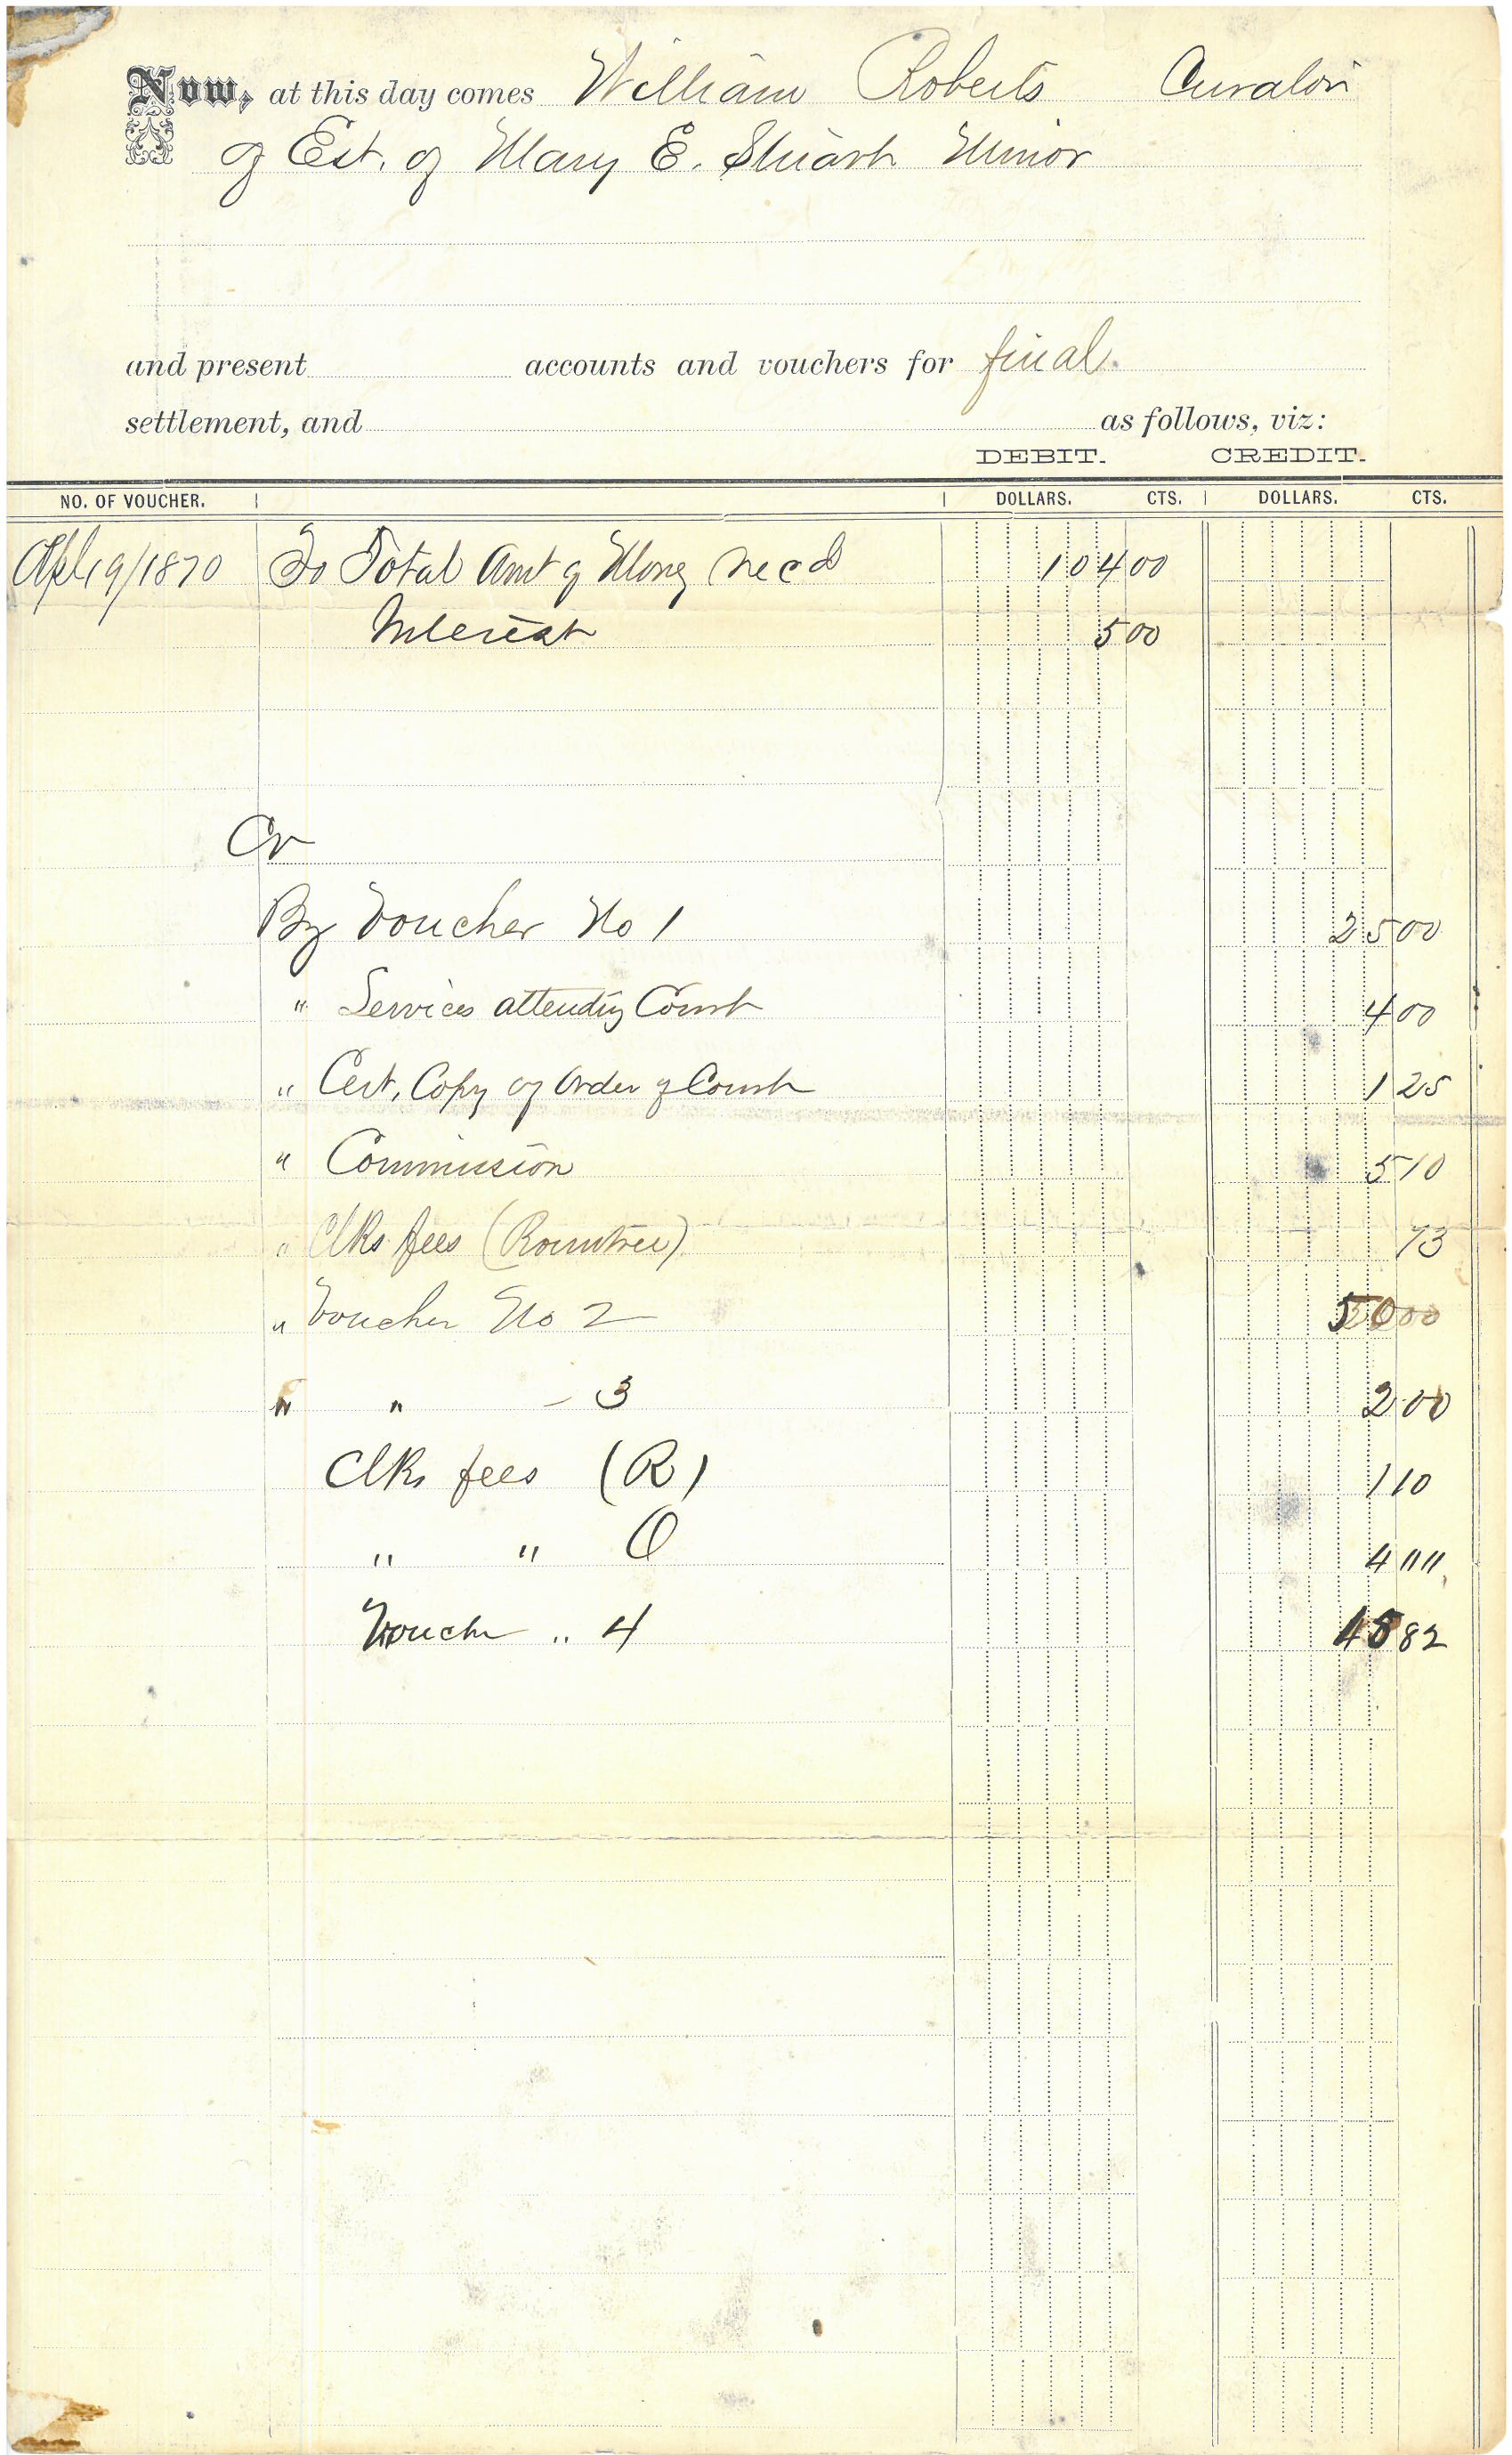 Now, at this day comes William Roberts Curator
of Est. of Mary E. Stuart Minor
and present accounts and vouchers for final
settlement, and as follows, viz:
DEBIT. CREDIT.
NO. OF VOUCHER. DOLLARS. CTS. DOLLARS. CTS.
Apl 19/1870 To Total Amt of Money recd 104 00
Interest 5 00
Cr
By Voucher No 1 25 00
" Services attending Court 4 00
" Cert. Copy of Order of Court 1 25
" Commission 5 10
" Clks fees (Rountree) 73
" Voucher No 2 50 00
" " - 3 2 00
Clks fees (R) 1 10
" " O 4 ""
Vouch " 4 15 82